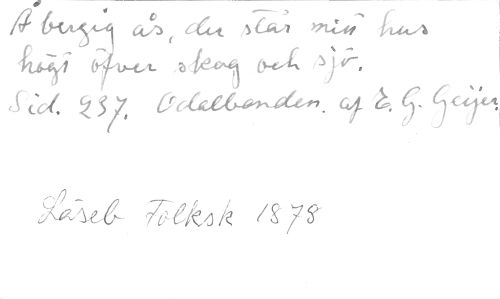 Å bergig ås, der står mitt hus
högt öfver skog och sjö.
Sid. 237. Odalbonden. af E. G. Geijer.
Läseb Folksk 1878